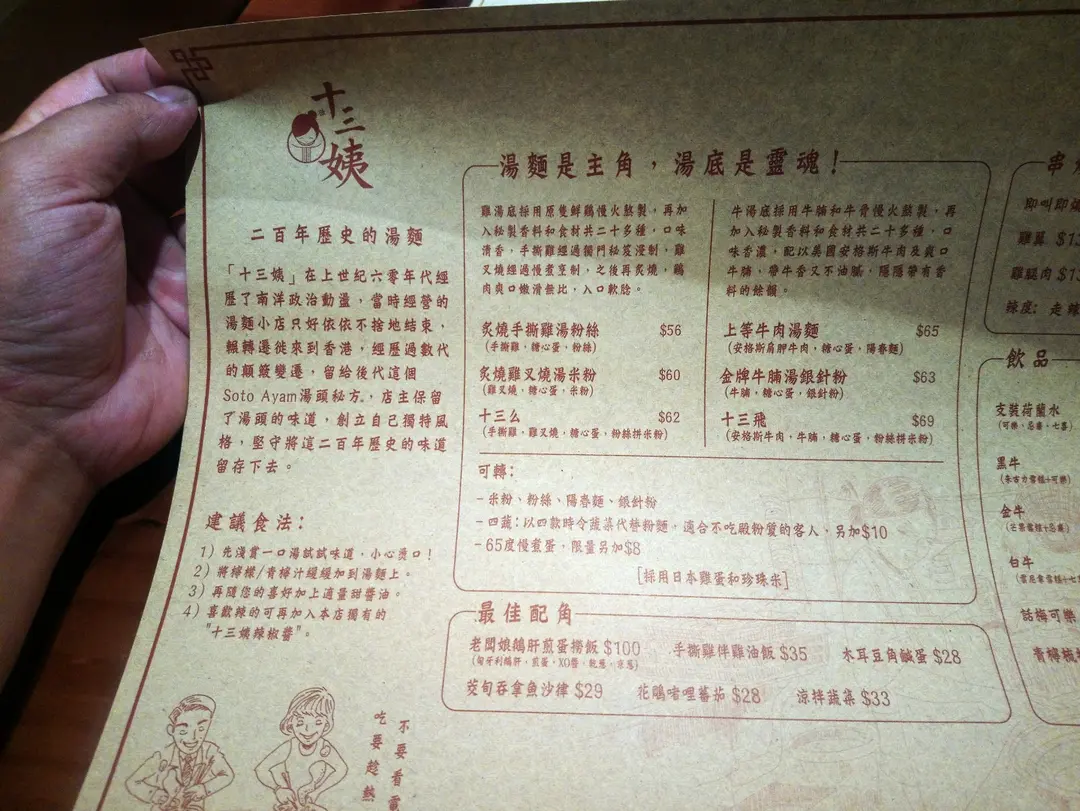 十三姨
二百年歷史的湯麵
「十三姨」在上世紀六零年代經
歷了南洋政治動盪，當時經營的
湯麵小店只好依依不捨地結束，
輾轉遷徙來到香港，經歷過數代
的顛簸變遷，留給後代這個
Soto Ayam湯頭秘方，店主保留
了湯頭的味道，創立自己獨特風
格，堅守將這二百年歷史的味道
留存下去。
建議食法：
1) 先淺嘗一口湯試試味道，小心燙口！
2) 將檸檬/青檸汁緩緩加到湯麵上。
3) 再隨您的喜好加上適量甜醬油。
4) 喜歡辣的可再加入本店獨有的
"十三姨辣椒醬"。
不要看電
吃要趁熱
湯麵是主角，湯底是靈魂！
雞湯底採用原隻鮮鷄慢火熬製，再加
入秘製香料和食材共二十多種，口味
清香，手撕雞經過獨門秘笈浸制，雞
叉燒經過慢煮烹制，之後再炙燒，鷄
肉爽口嫩滑無比，入口軟腍。
炙燒手撕雞湯粉絲 $56
(手撕雞，糖心蛋，粉絲)
炙燒雞叉燒湯米粉 $60
(雞叉燒，糖心蛋，米粉)
十三么 $62
(手撕雞，雞叉燒，糖心蛋，粉絲拼米粉)
牛湯底採用牛腩和牛骨慢火熬製，再
加入秘製香料和食材共二十多種，口
味香濃，配以美國安格斯牛肉及爽口
牛腩，帶牛香又不油膩，隱隱帶有香
料的餘韻。
上等牛肉湯麵 $65
(安格斯肩胛牛肉，糖心蛋，陽春麵)
金牌牛腩湯銀針粉 $63
(牛腩，糖心蛋，銀針粉)
十三飛 $69
(安格斯牛肉，牛腩，糖心蛋，粉絲拼米粉)
可轉：
- 米粉、粉絲、陽春麵、銀針粉
- 四蔬：以四款時令蔬菜代替粉麵，適合不吃澱粉質的客人，另加$10
- 65度慢煮蛋，限量另加$8
[採用日本雞蛋和珍珠米]
最佳配角
老闆娘鵝肝煎蛋撈飯 $100
(匈牙利鵝肝，煎蛋，XO醬，乾葱，京葱)
手撕雞伴雞油飯 $35
木耳豆角鹹蛋 $28
茭旬吞拿魚沙律 $29
花鵰啫哩蕃茄 $28
涼拌蔬菜 $33
串燒
即叫即燒
雞翼 $1
雞腿肉 $1
辣度：走辣
飲品
支裝荷蘭水
(可樂，忌廉，七喜)
黑牛
(朱古力雪糕+可樂)
金牛
(芒果雪糕+忌廉)
白牛
話梅可樂
青檸梳